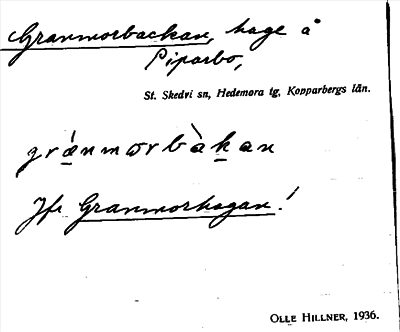 Granmorbackan, hage å
Piparbo,
St. Skedvi sn, Hedemora tg, Kopparbergs län.
gránmorbàkan
Jfr Granmorhagan!
OLLE HILLNER, 1936.